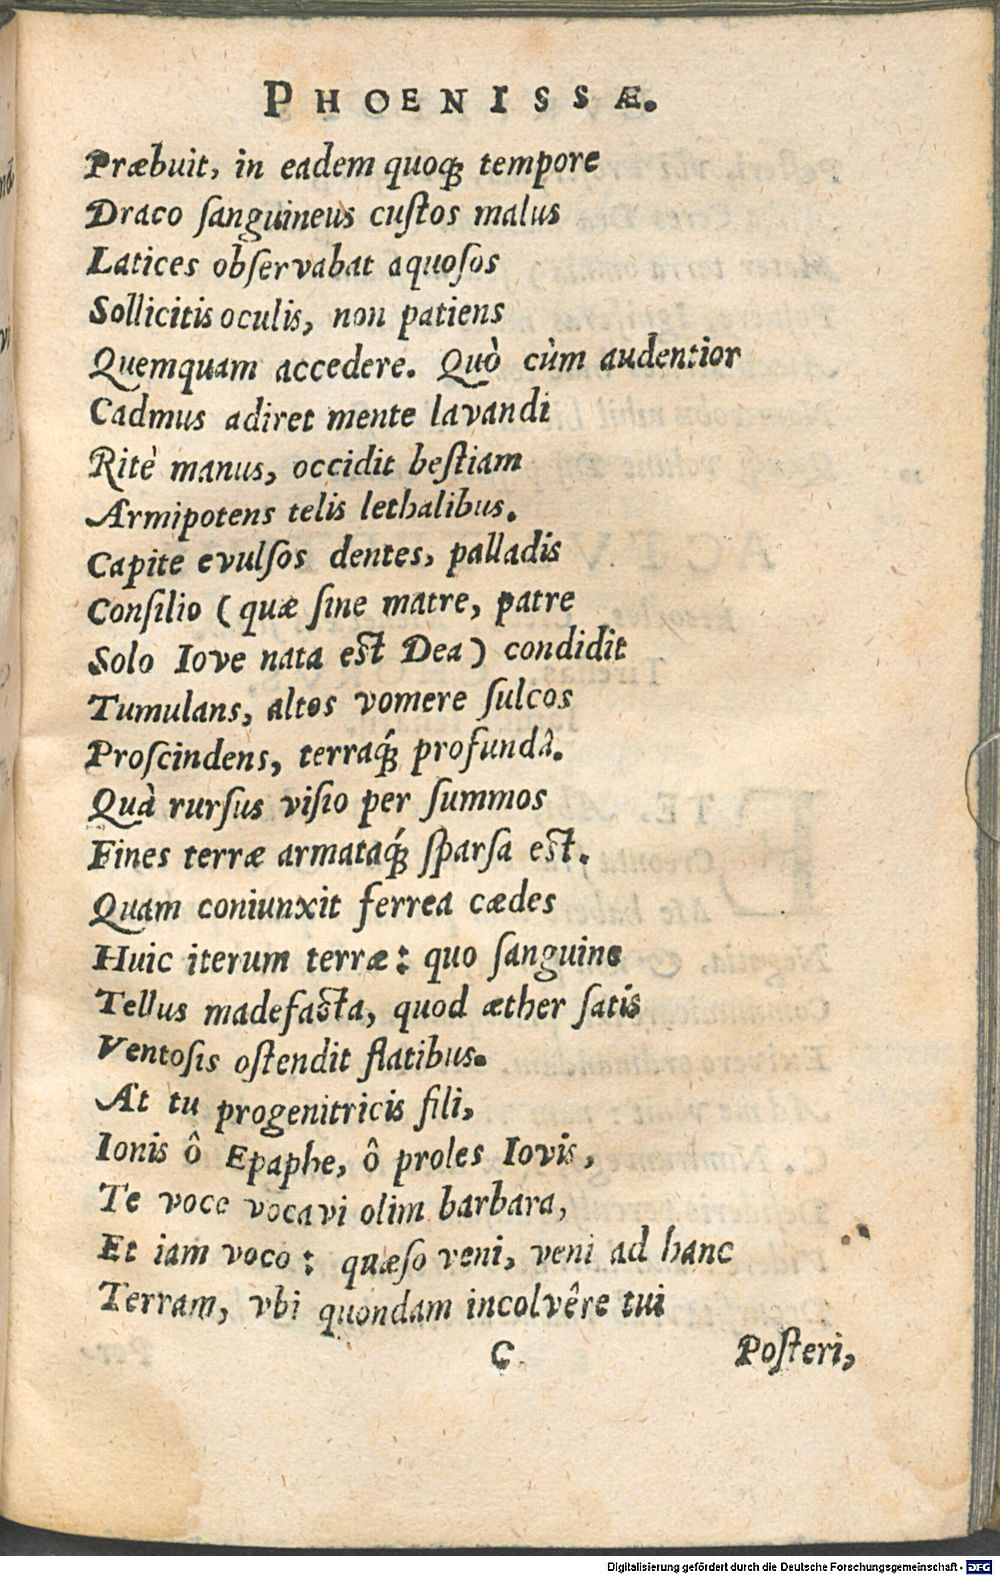 PHOENISSÆ.
Præbuit, in eadem quoq́; tempore
Draco ſanguineus cuſtos malus
Latices obſervabat aquoſos
Sollicitis oculis, non patiens
Quemquam accedere. Quò cùm audentior
Cadmus adiret mente lavandi
Ritè manus, occidit beſtiam
Armipotens telis lethalibus.
Capite evulſos dentes, palladis
Conſilio (quæ ſine matre, patre
Solo Iove nata eſt Dea) condidit
Tumulans, altos vomere ſulcos
Proſcindens, terraq́; profundâ.
Quà rurſus viſio per ſummos
Fines terræ armataq́; ſparſa eſt.
Quam coniunxit ferrea cædes
Huic iterum terræ: quo ſanguine
Tellus madefacta, quod æther ſatis
Ventoſis oſtendit flatibus.
At tu progenitricis fili,
Ionis ô Epaphe, ô proles Iovis,
Te voce vocavi olim barbara,
Et iam voco: quæſo veni, veni ad hanc
Terram, vbi quondam incolvêre tui
C Poſteri,
Digitalisierung gefördert durch die Deutsche Forschungsgemeinschaft - DFG